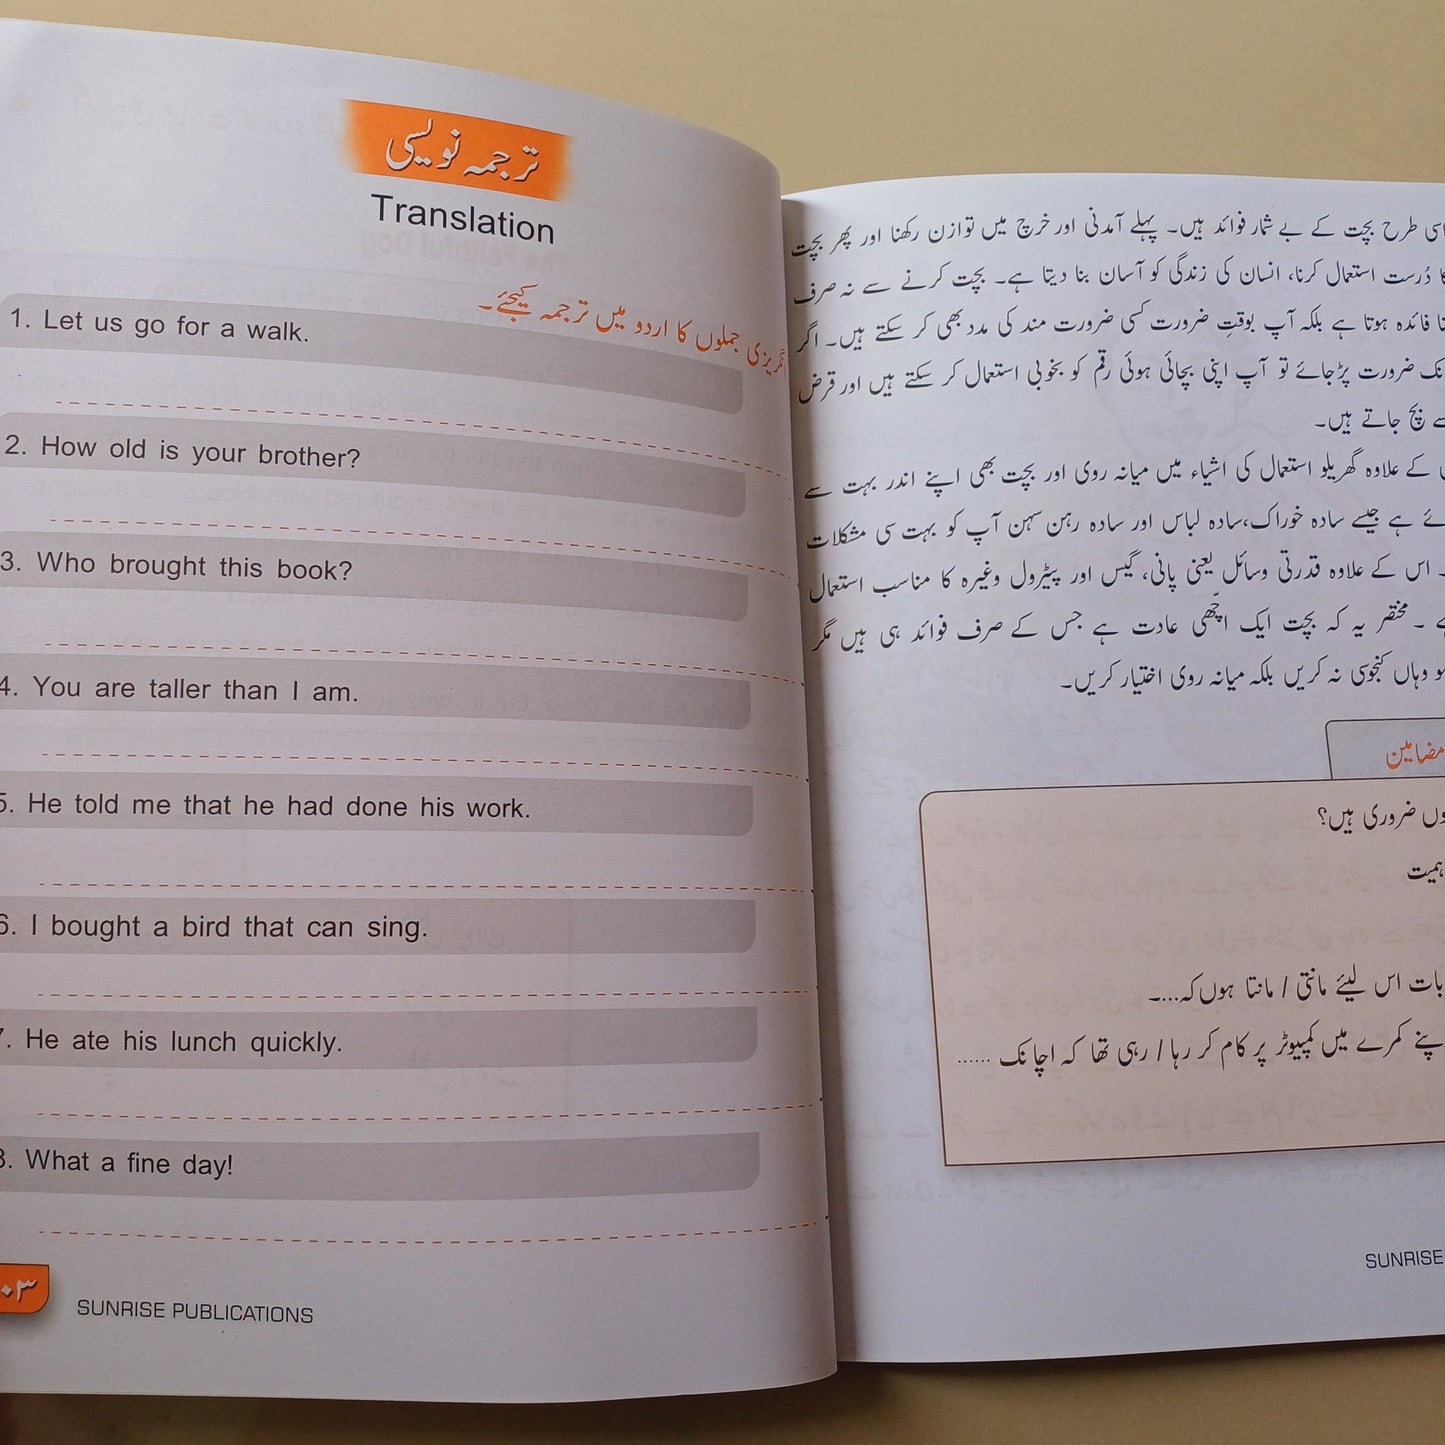 ترجمہ نویسی
Translation
انگریزی جملوں کا اردو میں ترجمہ کیجئے۔
1. Let us go for a walk.
2. How old is your brother?
3. Who brought this book?
4. You are taller than I am.
5. He told me that he had done his work.
6. I bought a bird that can sing.
7. He ate his lunch quickly.
8. What a fine day!
۰۳
SUNRISE PUBLICATIONS
اسی طرح بچت کے بے شمار فوائد ہیں۔ پہلے آمدنی اور خرچ میں توازن رکھنا اور پھر بچت
کا دُرست استعمال کرنا، انسان کی زندگی کو آسان بنا دیتا ہے۔ بچت کرنے سے نہ صرف
فائدہ ہوتا ہے بلکہ آپ بوقتِ ضرورت کسی ضرورت مند کی مدد بھی کر سکتے ہیں۔ اگر
ضرورت پڑجائے تو آپ اپنی بچائی ہوئی رقم کو بخوبی استعمال کر سکتے ہیں اور قرض
سے بچ جاتے ہیں۔
کے علاوہ گھریلو استعمال کی اشیاء میں میانہ روی اور بچت بھی اپنے اندر بہت سے
ہے جیسے سادہ خوراک،سادہ لباس اور سادہ رہن سہن آپ کو بہت سی مشکلات
۔ اس کے علاوہ قدرتی وسائل یعنی پانی، گیس اور پیٹرول وغیرہ کا مناسب استعمال
۔ مختصر یہ کہ بچت ایک اچّھی عادت ہے جس کے صرف فوائد ہی ہیں مگر
وہاں کنجوسی نہ کریں بلکہ میانہ روی اختیار کریں۔
مضامین
ضروری ہیں؟
بات اس لیئے مانتی / مانتا ہوں کہ....۔
کمرے میں کمپیوٹر پر کام کر رہا / رہی تھا کہ اچانک ......
SUNRISE